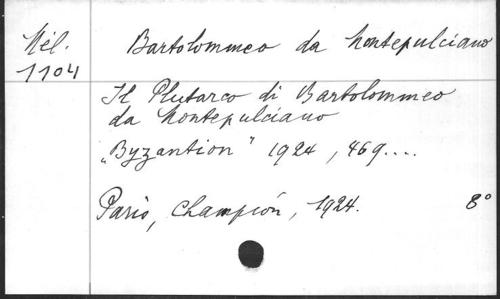 Mél. Bartolommeo da Montepulciano
1104
Il Plutarco di Bartolommeo
da Montepulciano
„Byzantion" 1924, 469....
Paris, Champión, 1924. 8°